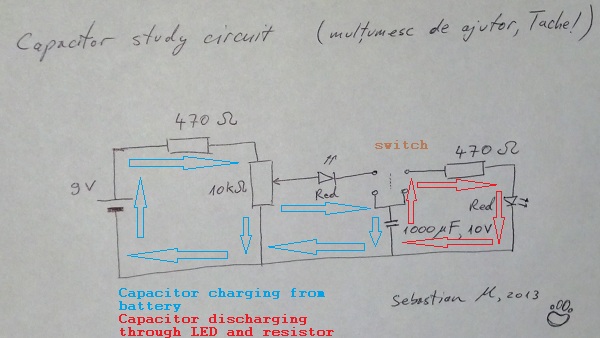 Capacitor study circuit (mulțumesc de ajutor, Tache!)
470 Ω
switch
470 Ω
9V
10kΩ
Red
Red
1000μF, 10V
Capacitor charging from
battery
Capacitor discharging
through LED and resistor
Sebastian M, 2013